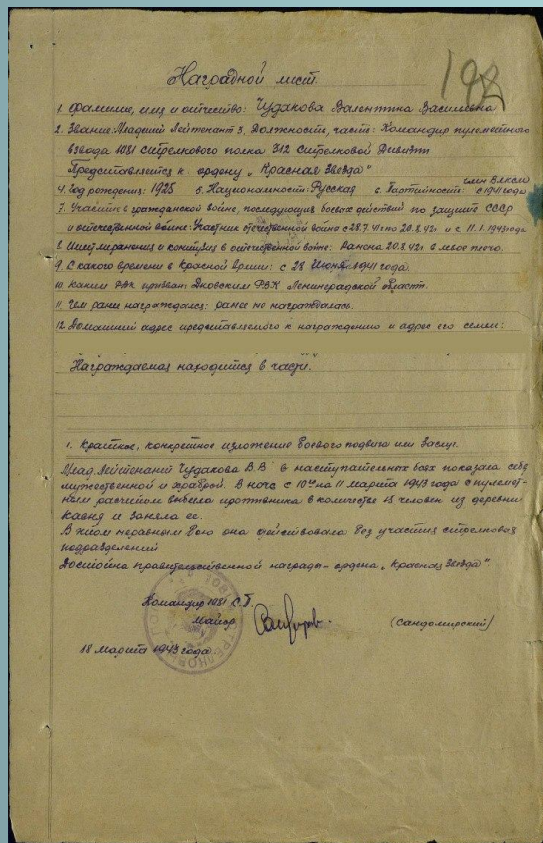 198
Наградной лист.
1. Фамилие, имя и отчество: Чудакова Валентина Васильевна
2. Звание: Младший Лейтенант 3. Должность, часть: Командир пулеметного
взвода 1081 Стрелкового полка 312 Стрелковой Дивизии
Представляется к ордену „Красная Звезда"
4. Год рождения: 1925 5. Национальность: Русская 6. Партийность: член ВЛКСМ с 1941 года
7. Участие в гражданской войне, последующих боевых действий по защите СССР
и отечественной войне: Участник отечественной войне с 28.7.41 по 20.8.42г. и с 11.1.1943 года
8. Имеет ли ранения и контузия в отечественной войне: Ранена 20.8.42г. в левое плечо.
9. С какого времени в Красной Армии: с 28 Июня 1941 года.
10. Каким РВК призван: Дновским РВК Ленинградской области.
11. Чем ранее награждался: ранее не награждалась.
12. Домашний адрес представляемого к награждению и адрес его семьи:
Награждаемая находится в части.
1. Краткое, конкретное изложение боевого подвига или заслуг.
Млад. Лейтенант Чудакова В.В в наступательных боях показала себя
мужественной и храброй. В ночь с 10 на 11 марта 1943 года с пулемет-
ным расчетом выбила противника в количестве 15 человек из деревни
и заняла ее.
В этом неравном бою она действовала без участия стрелковых
подразделений
Достойна правительственной награды - ордена „Красная Звезда"
Командир 1081 С.П.
Майор (Сандомирский)
18 марта 1943 года.